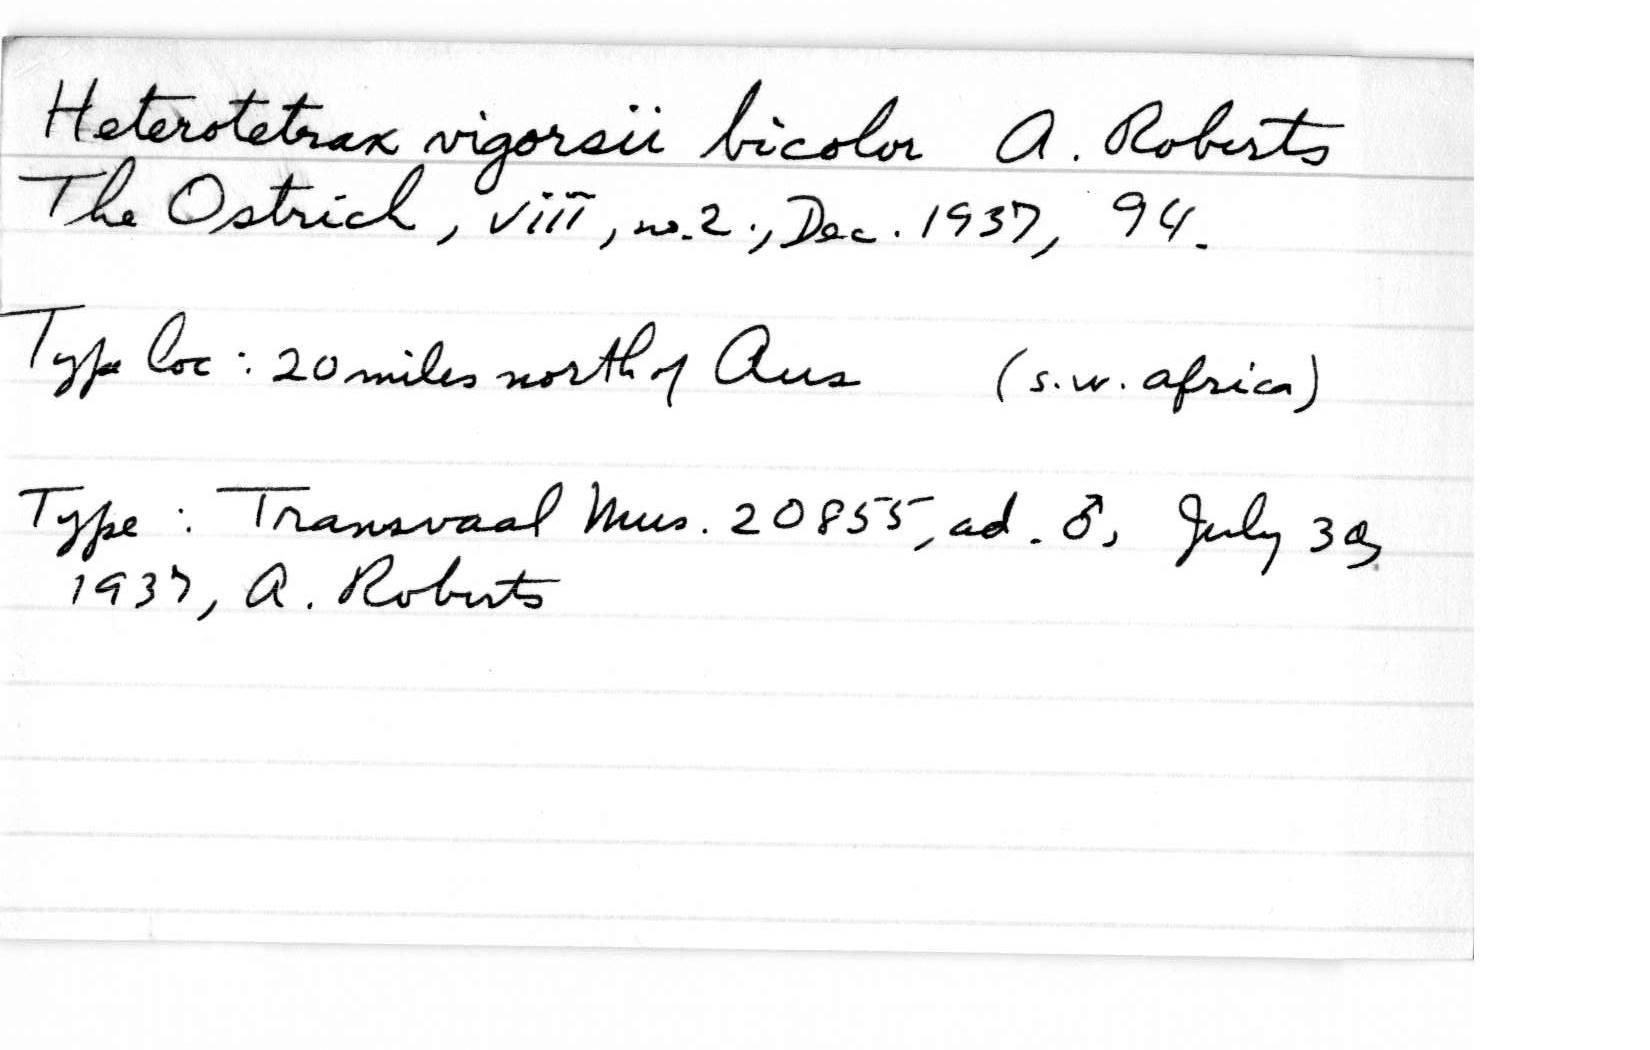 Heterotetrax vigorsii bicolor A. Roberts
The Ostrich, viii, no. 2., Dec. 1937, 94.
Type loc: 20 miles north of Aus (s.w. africa)
Type: Transvaal Mus. 20855, ad. ♂, July 30,
1937, A. Roberts